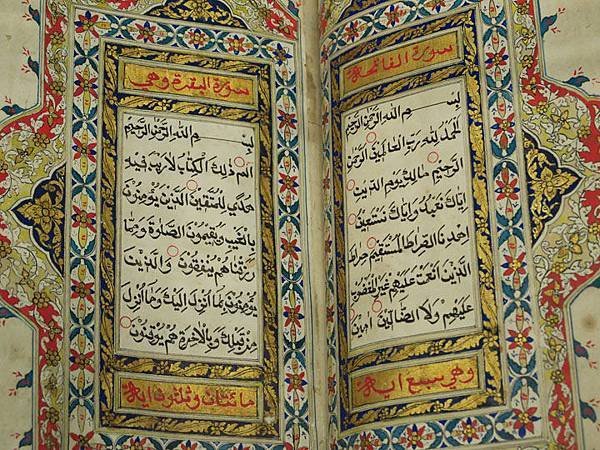 سورة الفاتحة
بسم الله الرحمن الرحيم
الحمد لله رب العالمين الرحمن
الرحيم مالك يوم الدين
اياك نعبد واياك نستعين
اهدنا الصراط المستقيم صراط
الذين انعمت عليهم غير المغضوب
عليهم ولا الضالين امين
وهي سبع اية
سورة البقرة وهي
بسم الله الرحمن الرحيم
الم ذلك الكتاب لا ريب فيه
هدى للمتقين الذين يؤمنون
بالغيب ويقيمون الصلوة ومما
رزقناهم ينفقون والذين
يؤمنون بما انزل اليك وما انزل
من قبلك وبالاخرة هم يوقنون
مائتان وثمانون اية